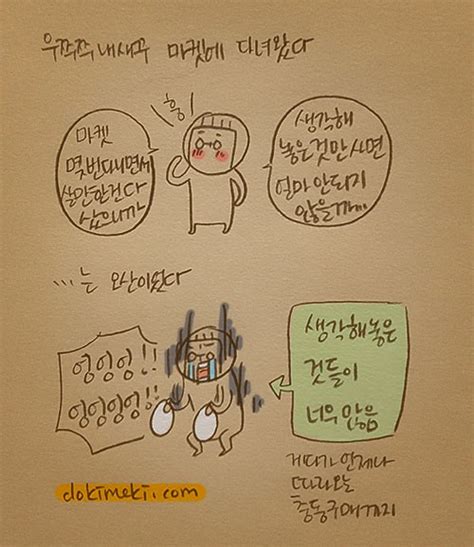 우쭈쭈내새꾸 마켓에 다녀왔다
흥!
마켓
몇번다니면서
살만한건다
샀으니까
생각해
놓은것만사면
얼마안되지
않을까...
...는 오산이었다
엉엉엉!!
엉엉엉엉!!
생각해놓은
것들이
너무많음
언제나
따라오는
충동구매까지
dokimeki.com